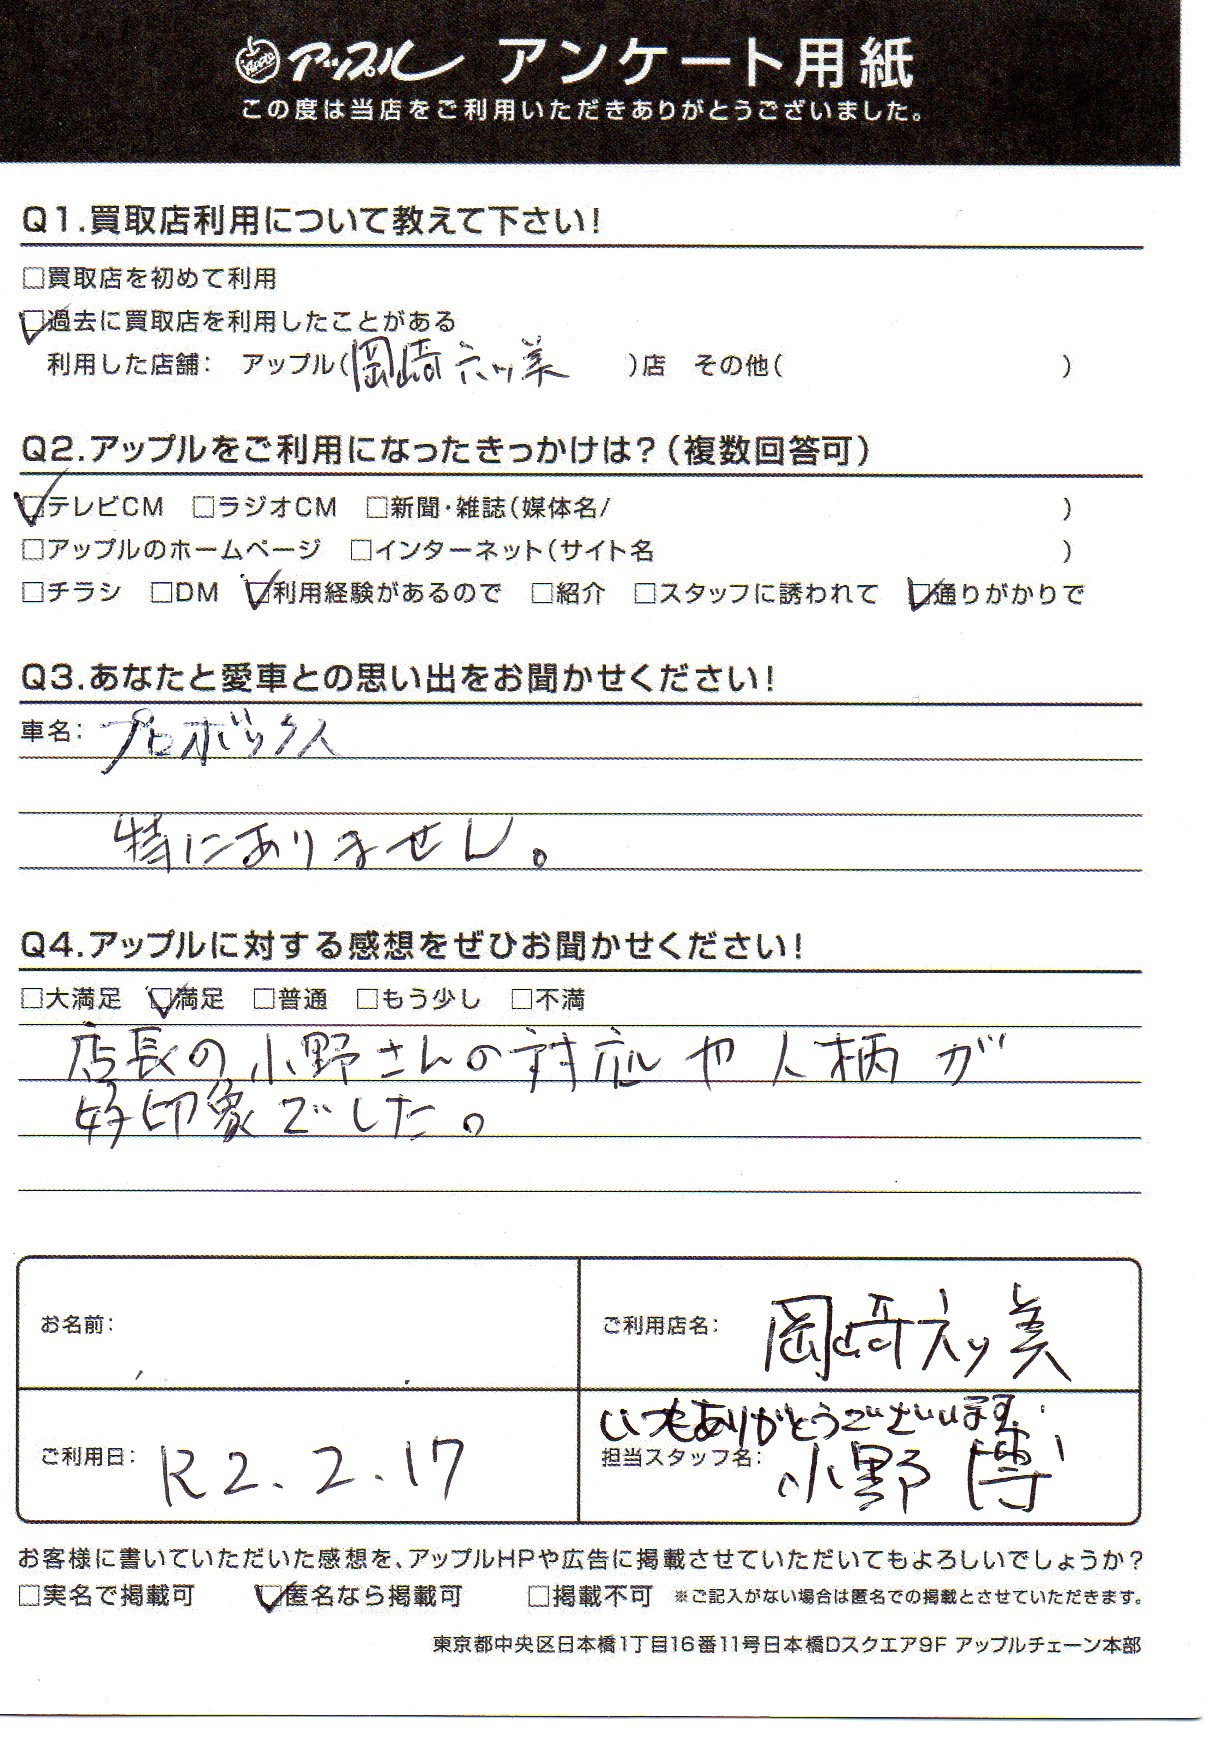 Apple アップル アンケート用紙
この度は当店をご利用いただきありがとうございました。
Q1.買取店利用について教えて下さい!
□買取店を初めて利用
☑過去に買取店を利用したことがある
利用した店舗: アップル(岡崎六ッ美 )店 その他( )
Q2.アップルをご利用になったきっかけは?(複数回答可)
☑テレビCM □ラジオCM □新聞・雑誌(媒体名/ )
□アップルのホームページ □インターネット(サイト名 )
□チラシ □DM ☑利用経験があるので □紹介 □スタッフに誘われて ☑通りがかりで
Q3.あなたと愛車との思い出をお聞かせください!
車名: プロボックス
特にありません。
Q4.アップルに対する感想をぜひお聞かせください!
□大満足 ☑満足 □普通 □もう少し □不満
店長の小野さんの対応や人柄が
好印象でした。
お名前:
ご利用店名: 岡崎六ッ美
ご利用日: R2.2.17
いつもありがとうございます。
担当スタッフ名: 小野 博
お客様に書いていただいた感想を、アップルHPや広告に掲載させていただいてもよろしいでしょうか?
□実名で掲載可 ☑匿名なら掲載可 □掲載不可 ※ご記入がない場合は匿名での掲載とさせていただきます。
東京都中央区日本橋1丁目16番11号日本橋Dスクエア9F アップルチェーン本部